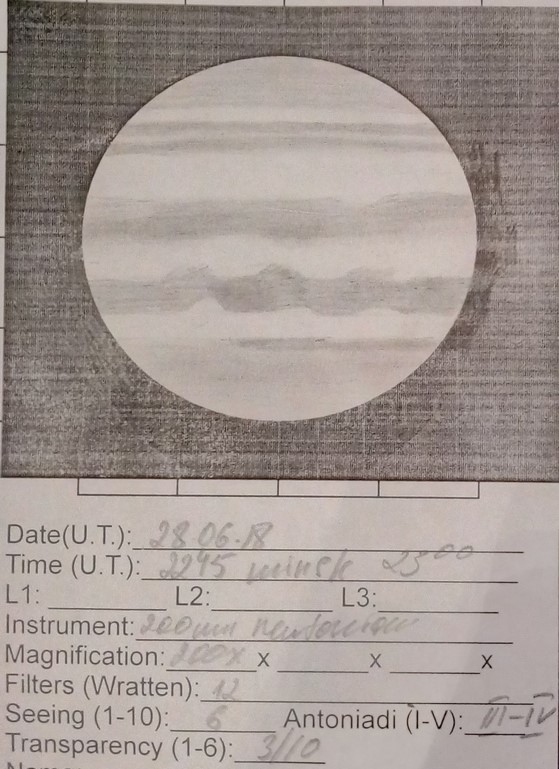 Date(U.T.): 28 06.18
Time (U.T.): 2245 minsk 23⁰⁰
L1: L2: L3:
Instrument: 200mm newtonian
Magnification: 200x x x x
Filters (Wratten): 12
Seeing (1-10): 6 Antoniadi (I-V): III-IV
Transparency (1-6): 3/10